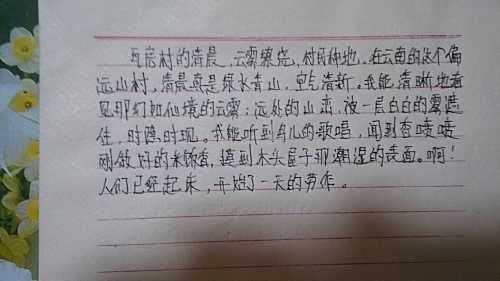 瓦房村的清晨，云雾缭绕，村民种地。在云南的这个偏
远山村，清晨真是绿水青山，空气清新。我能清晰地看
见那幻如仙境的云雾；远处的山峦，被一层白白的雾遮
住，时隐时现。我能听到鸟儿的歌唱，闻到香喷喷
刚做好的米饭香，摸到木头屋子那潮湿的表面。啊！
人们已经起床，开始了一天的劳作。